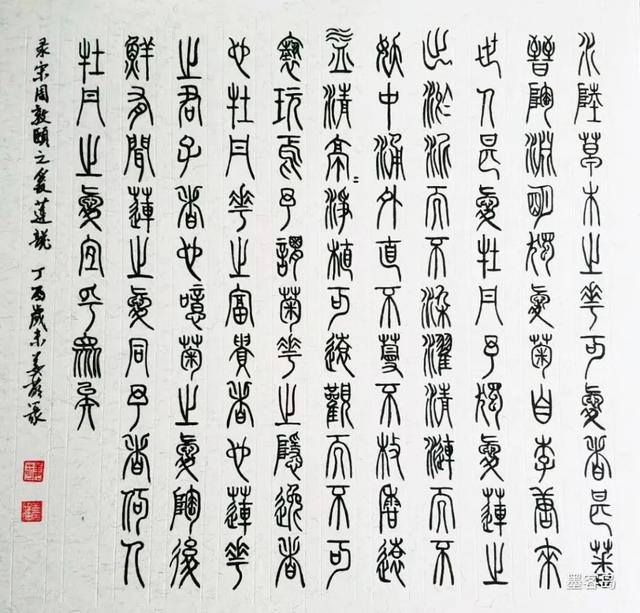 水陸草木之華可愛者甚蕃
晉陶淵明獨愛菊自李唐來
世人甚愛牡丹予獨愛蓮之
出淤泥而不染濯清漣而不
妖中通外直不蔓不枝香遠
益清亭=淨植可遠觀而不可
褻玩焉予謂菊華之隱逸者
也牡丹華之富貴者也蓮華
之君子者也噫菊之愛陶後
鮮有聞蓮之愛同予者何人
牡丹之愛宜乎眾矣
录宋周敦頤之爱蓮說 丁酉歲末 篆
墨客岛